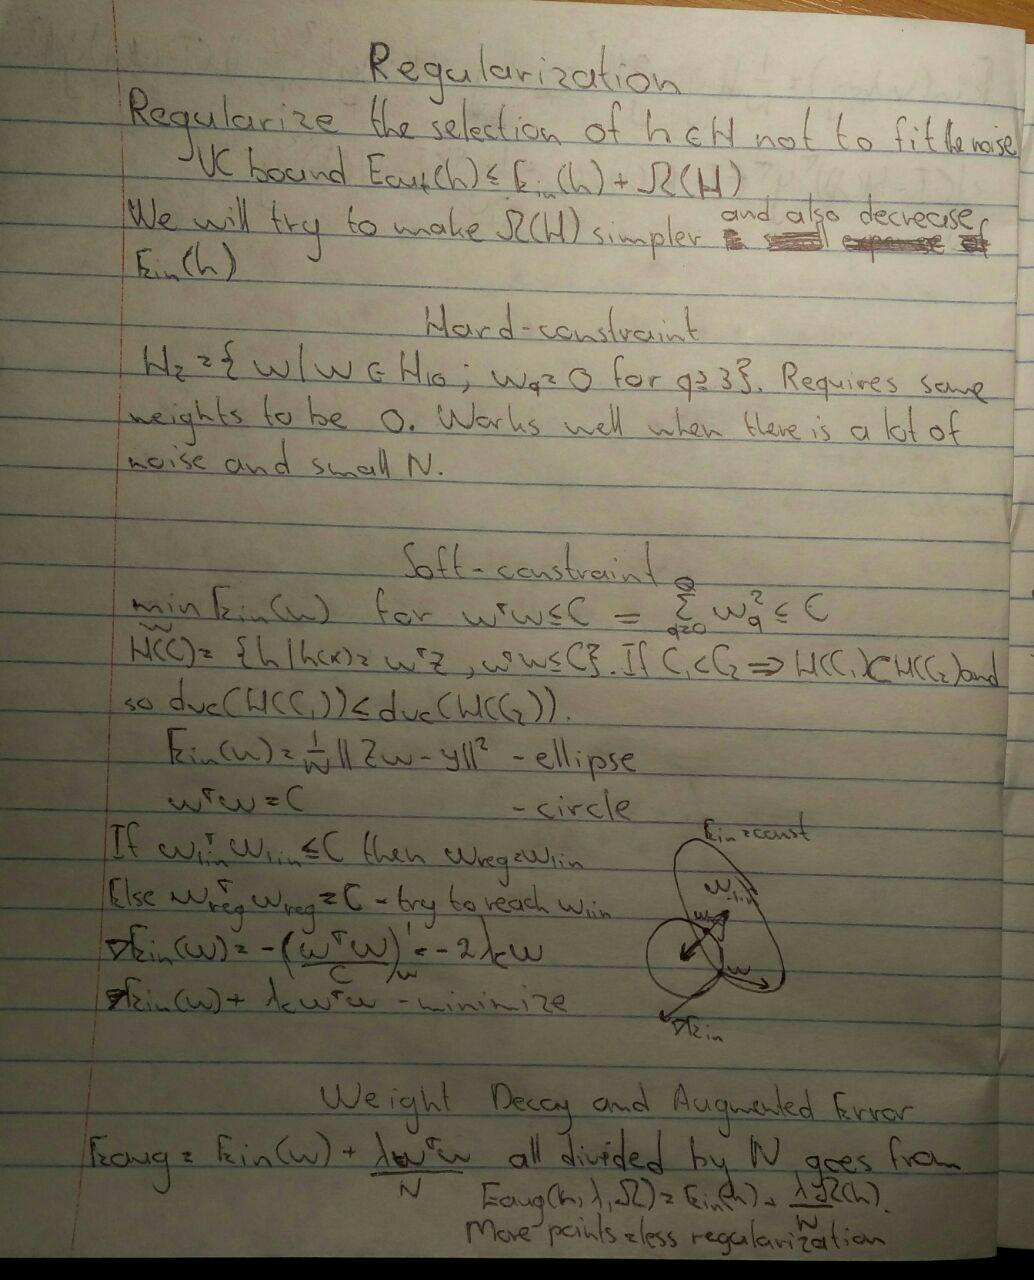 Regularization
Regularize the selection of h ∈ H not to fit the noise
VC bound Eout(h) ≤ Ein(h) + Ω(H)
We will try to make Ω(H) simpler and also decrease
Ein(h)
Hard-constraint
H₂ = { w | w ∈ H₁₀ ; w_q = 0 for q ≥ 3}. Requires some
weights to be 0. Works well when there is a lot of
noise and small N.
Soft-constraint
min Ein(w) for wᵀw ≤ C = Σ_{q=0}^{Q} w_q² ≤ C
H(C) = {h | h(x) = wᵀz, wᵀw ≤ C}. If C₁ < C₂ ⇒ H(C₁) ⊂ H(C₂) and
so dvc(H(C₁)) ≤ dvc(H(C₂)).
Ein(w) = 1/N ||Zw - y||² - ellipse
wᵀw = C - circle
Ein = const
If wlinᵀ wlin ≤ C then wreg = wlin
wlin
Else wregᵀ wreg = C - try to reach wlin
w
∇Ein(w) = -(wᵀw/C)'_w = -2λ_C w
w
Ein(w) + λ_C wᵀw - minimize
∇Ein
Weight Decay and Augmented Error
Eaug = Ein(w) + λwᵀw/N all divided by N goes from
Eaug(h, λ, Ω) = Ein(h) + λΩ(h)/N.
More points = less regularization